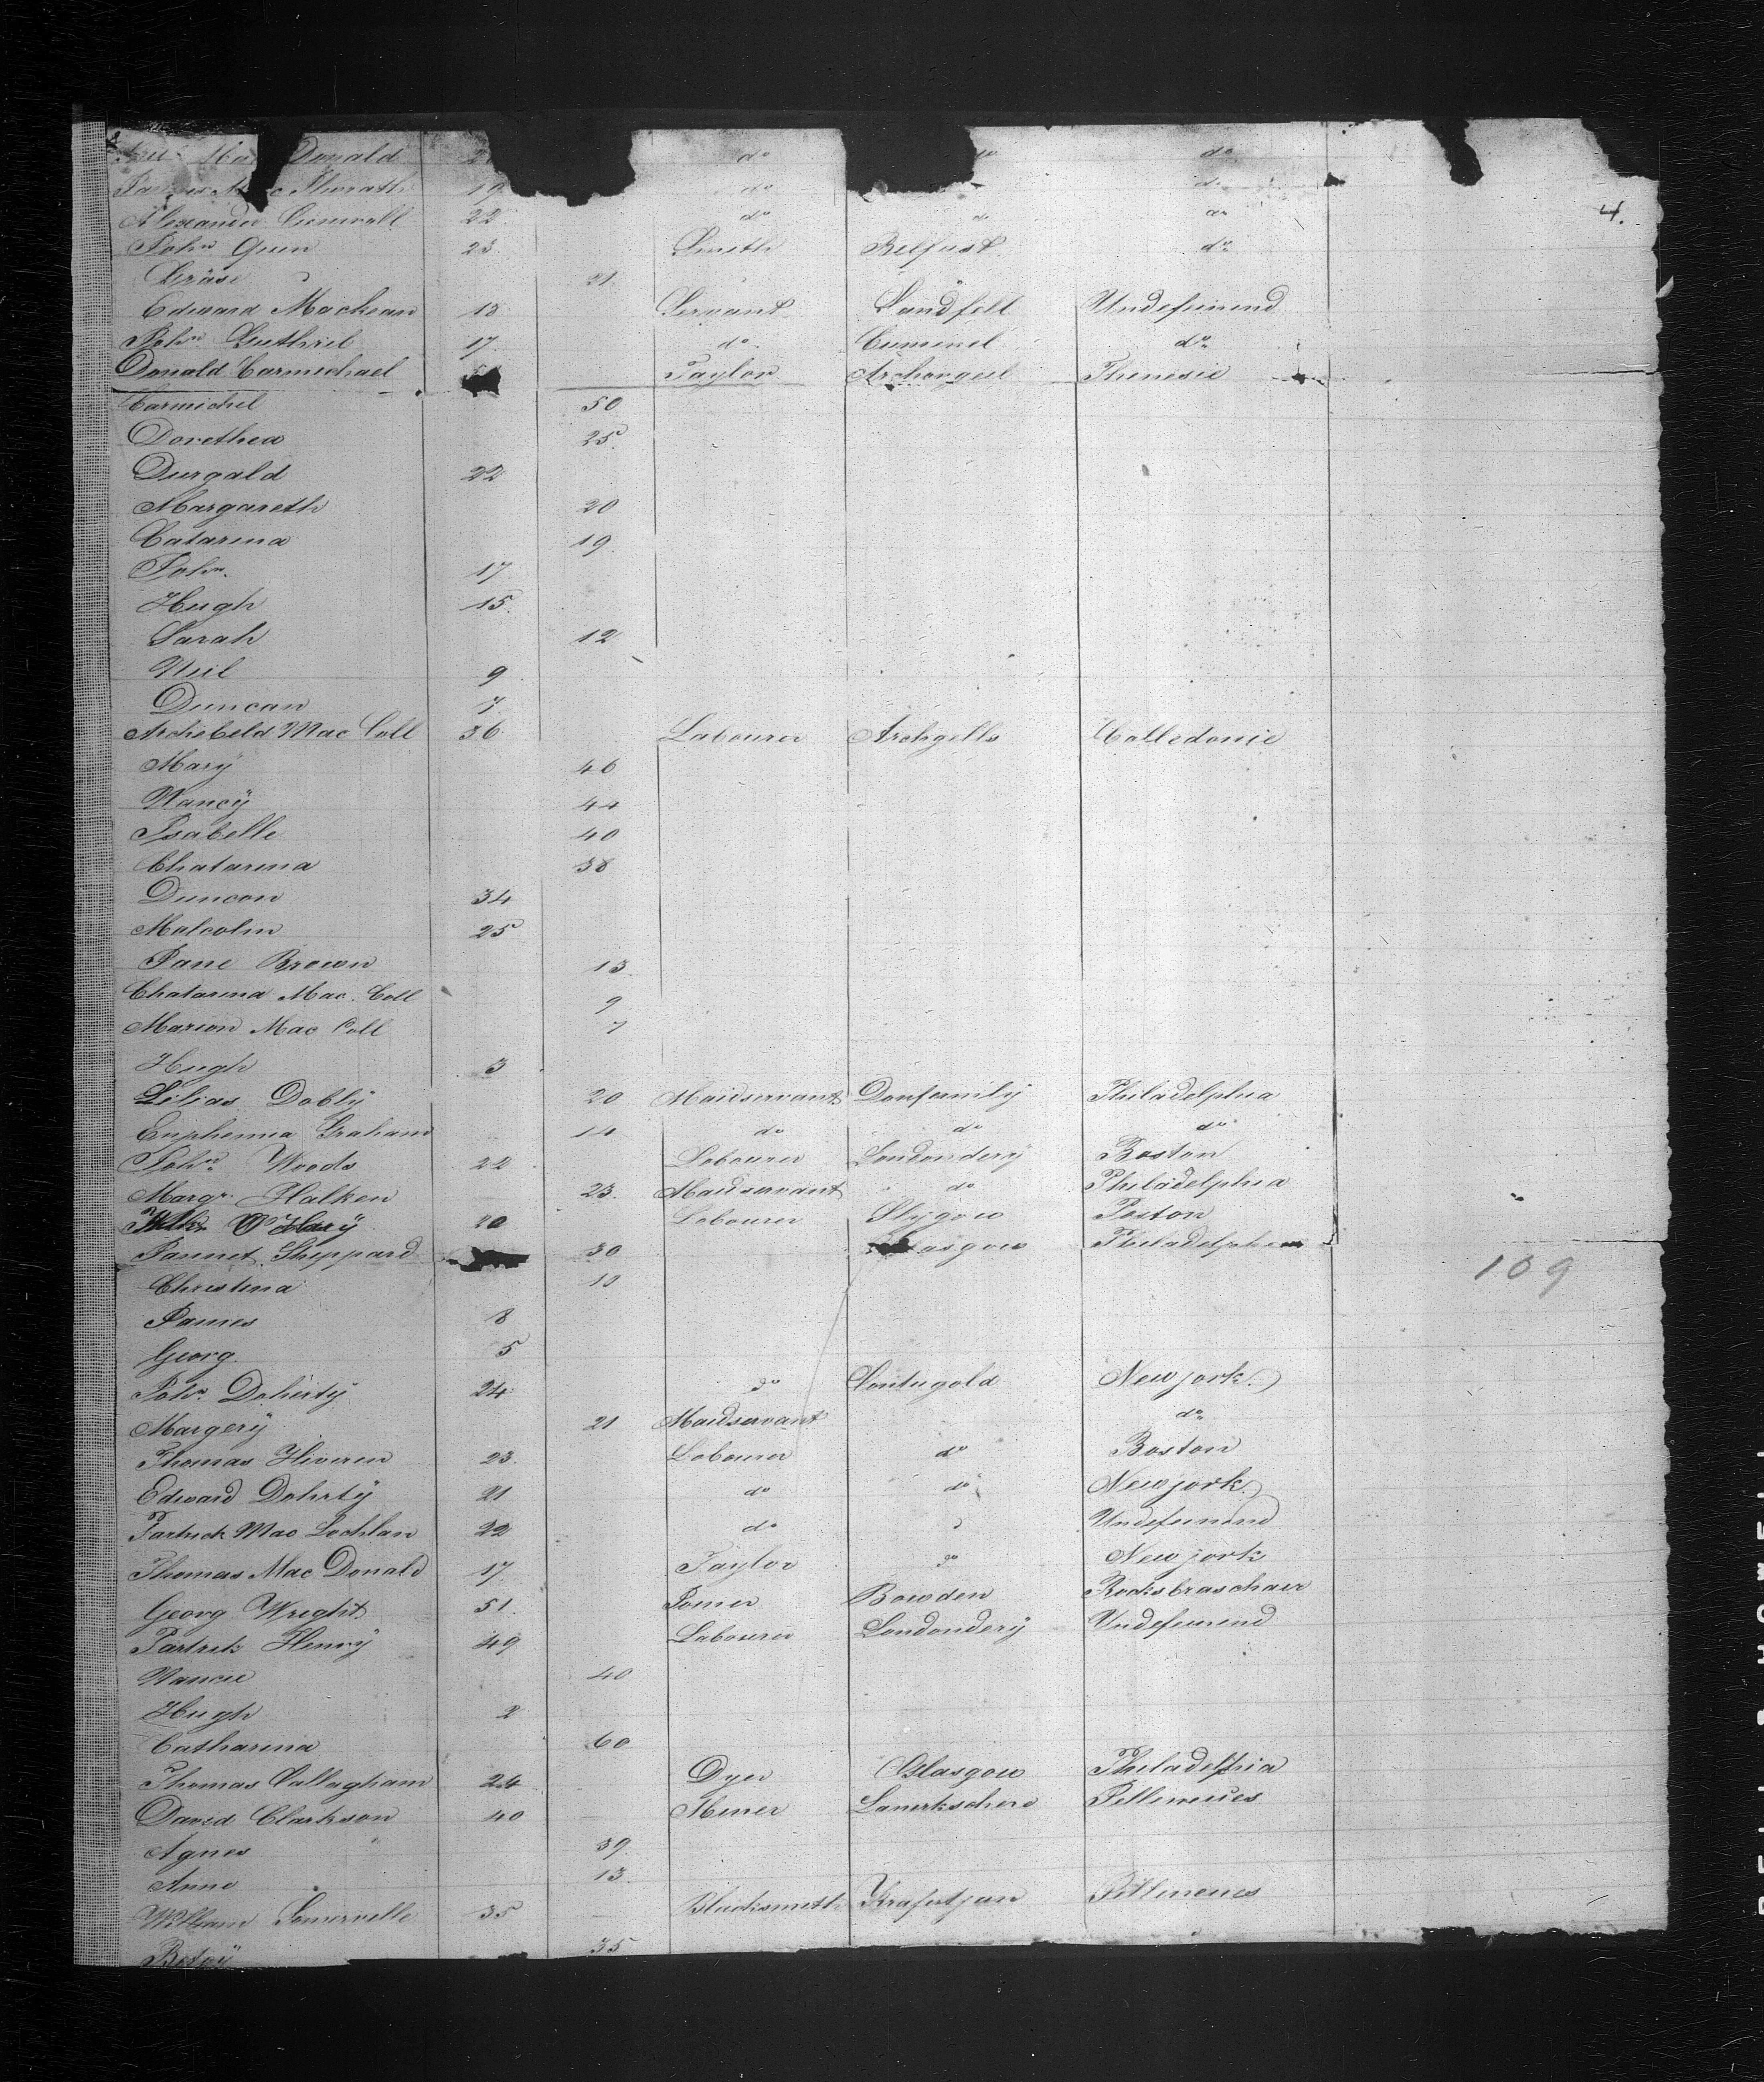 Donald 2 do do do
Mac 19 do do
Alexander 22 do do do
4.
John Gunn 23 Smith Belfast do
Gräse 21
Edward Mackean 18 Servant Sandfell Undefeinend
John Guthriel 17 do Cumend do
Donald Carmichael Taylor Archorgeel Thenesie
Carmichel 50
Dorethea 25
Durgald 22
Margareth 20
Catarina 19
John 17
Hugh 15
Sarah 12
Neil 9
Duncan 7
Archebeld Mac Coll 36 Labourer Archgells Calledonie
Marÿ 46
Nancÿ 44
Isabelle 40
Chatarina 38
Duncon 34
Malcolm 25
Jane Brown 13
Chatarina Mac. Coll 9
Marion Mac Coll 7
Hugh 3
Lilias Doblÿ 20 Maidservant Donfermlÿ Philadelphia
Euphemia Graham 14 do do do
John Woods 22 Labourer Londonderÿ Boston
Margr. Halken 23 Maidservant do Philadelphia
20 Labourer Slÿgow Poston
Jannet Sheppard 30 asgow Philadelphia
109
Christina 10
James 8
Georg 5
John Dohertÿ 24 do Contugold New jork
Margerÿ 21 Maidservant do
Thomas Hiveren 23 Labourer do Boston
Edward Dohrtÿ 21 do do New jork
Partick Mac Lochlan 22 do Undefeinend
Thomas Mac Donald 17 Taylor do New jork
Georg Wright 51 Bowden Rocksbraschaer
Partrik Henrÿ 49 Labourer Londonderÿ Undefeinend
Nancie 40
Hugh 2
Catharina 60
Thomas Callagham 24 Dyer Glasgow Philadelphia
David Clarkson 40 Miner Lanerkschere Pellineues
Agnes 39
Anne 13
William Somerville 35 Blacksmeth Krafutjan Pillineues
Betsÿ 35